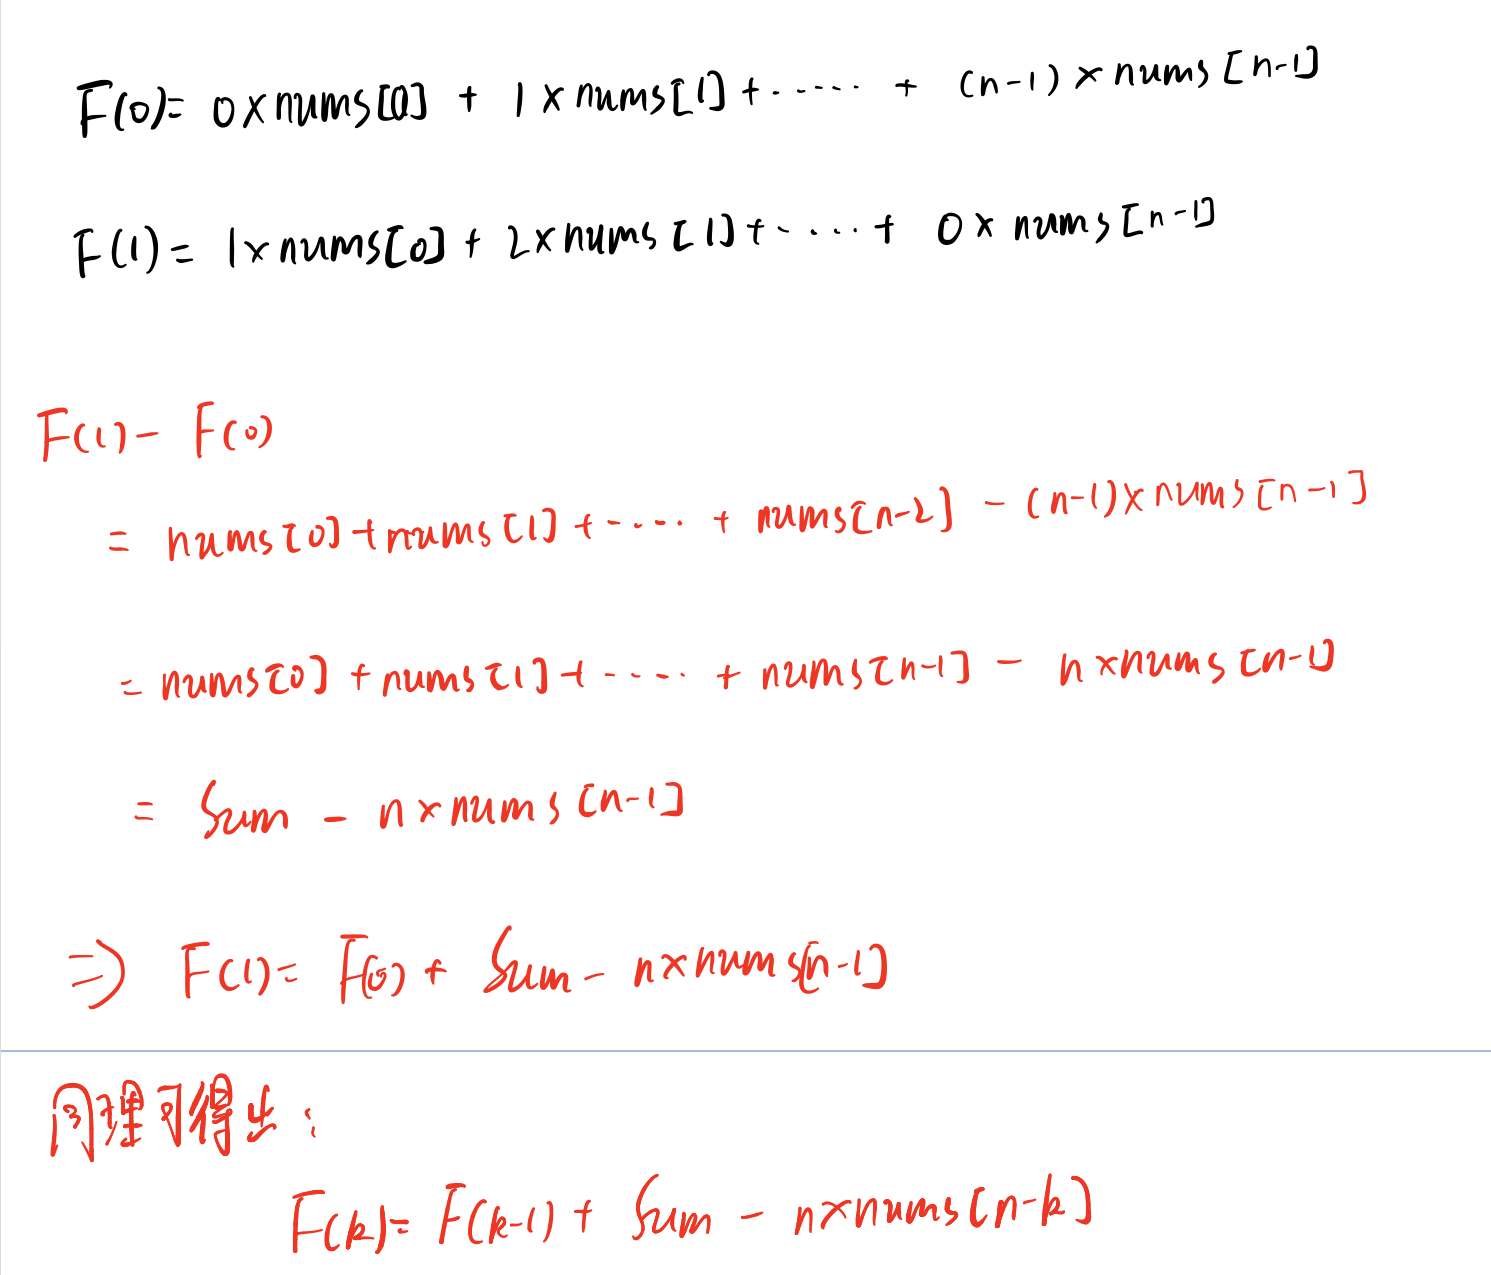 F(0)= 0×nums[0] + 1×nums[1]+······ + (n-1)×nums[n-1]
F(1)= 1×nums[0]+ 2×nums[1]+·····+ 0×nums[n-1]
F(1)- F(0)
= nums[0]+nums[1]+····· + nums[n-2] - (n-1)×nums[n-1]
= nums[0]+nums[1]+····· + nums[n-1] - n×nums[n-1]
= Sum - n×nums[n-1]
⇒ F(1)= F(0)+ Sum - n×nums[n-1]
同理可得出:
F(k)= F(k-1)+ Sum - n×nums[n-k]